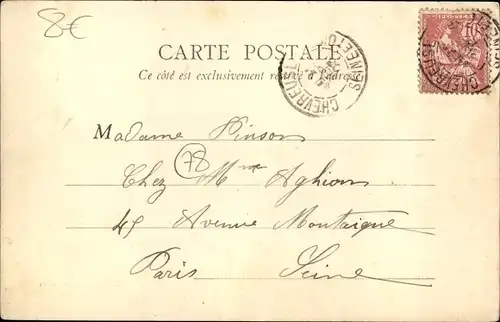 8€
CARTE POSTALE
Ce côté est exclusivement réservé à l'adresse
CHEVREUSE
SEINE-ET-OISE
10
CHEVREUSE
Madame Pinson
78
Chez Mme Aghion
45 Avenue Montaigne
Paris Seine